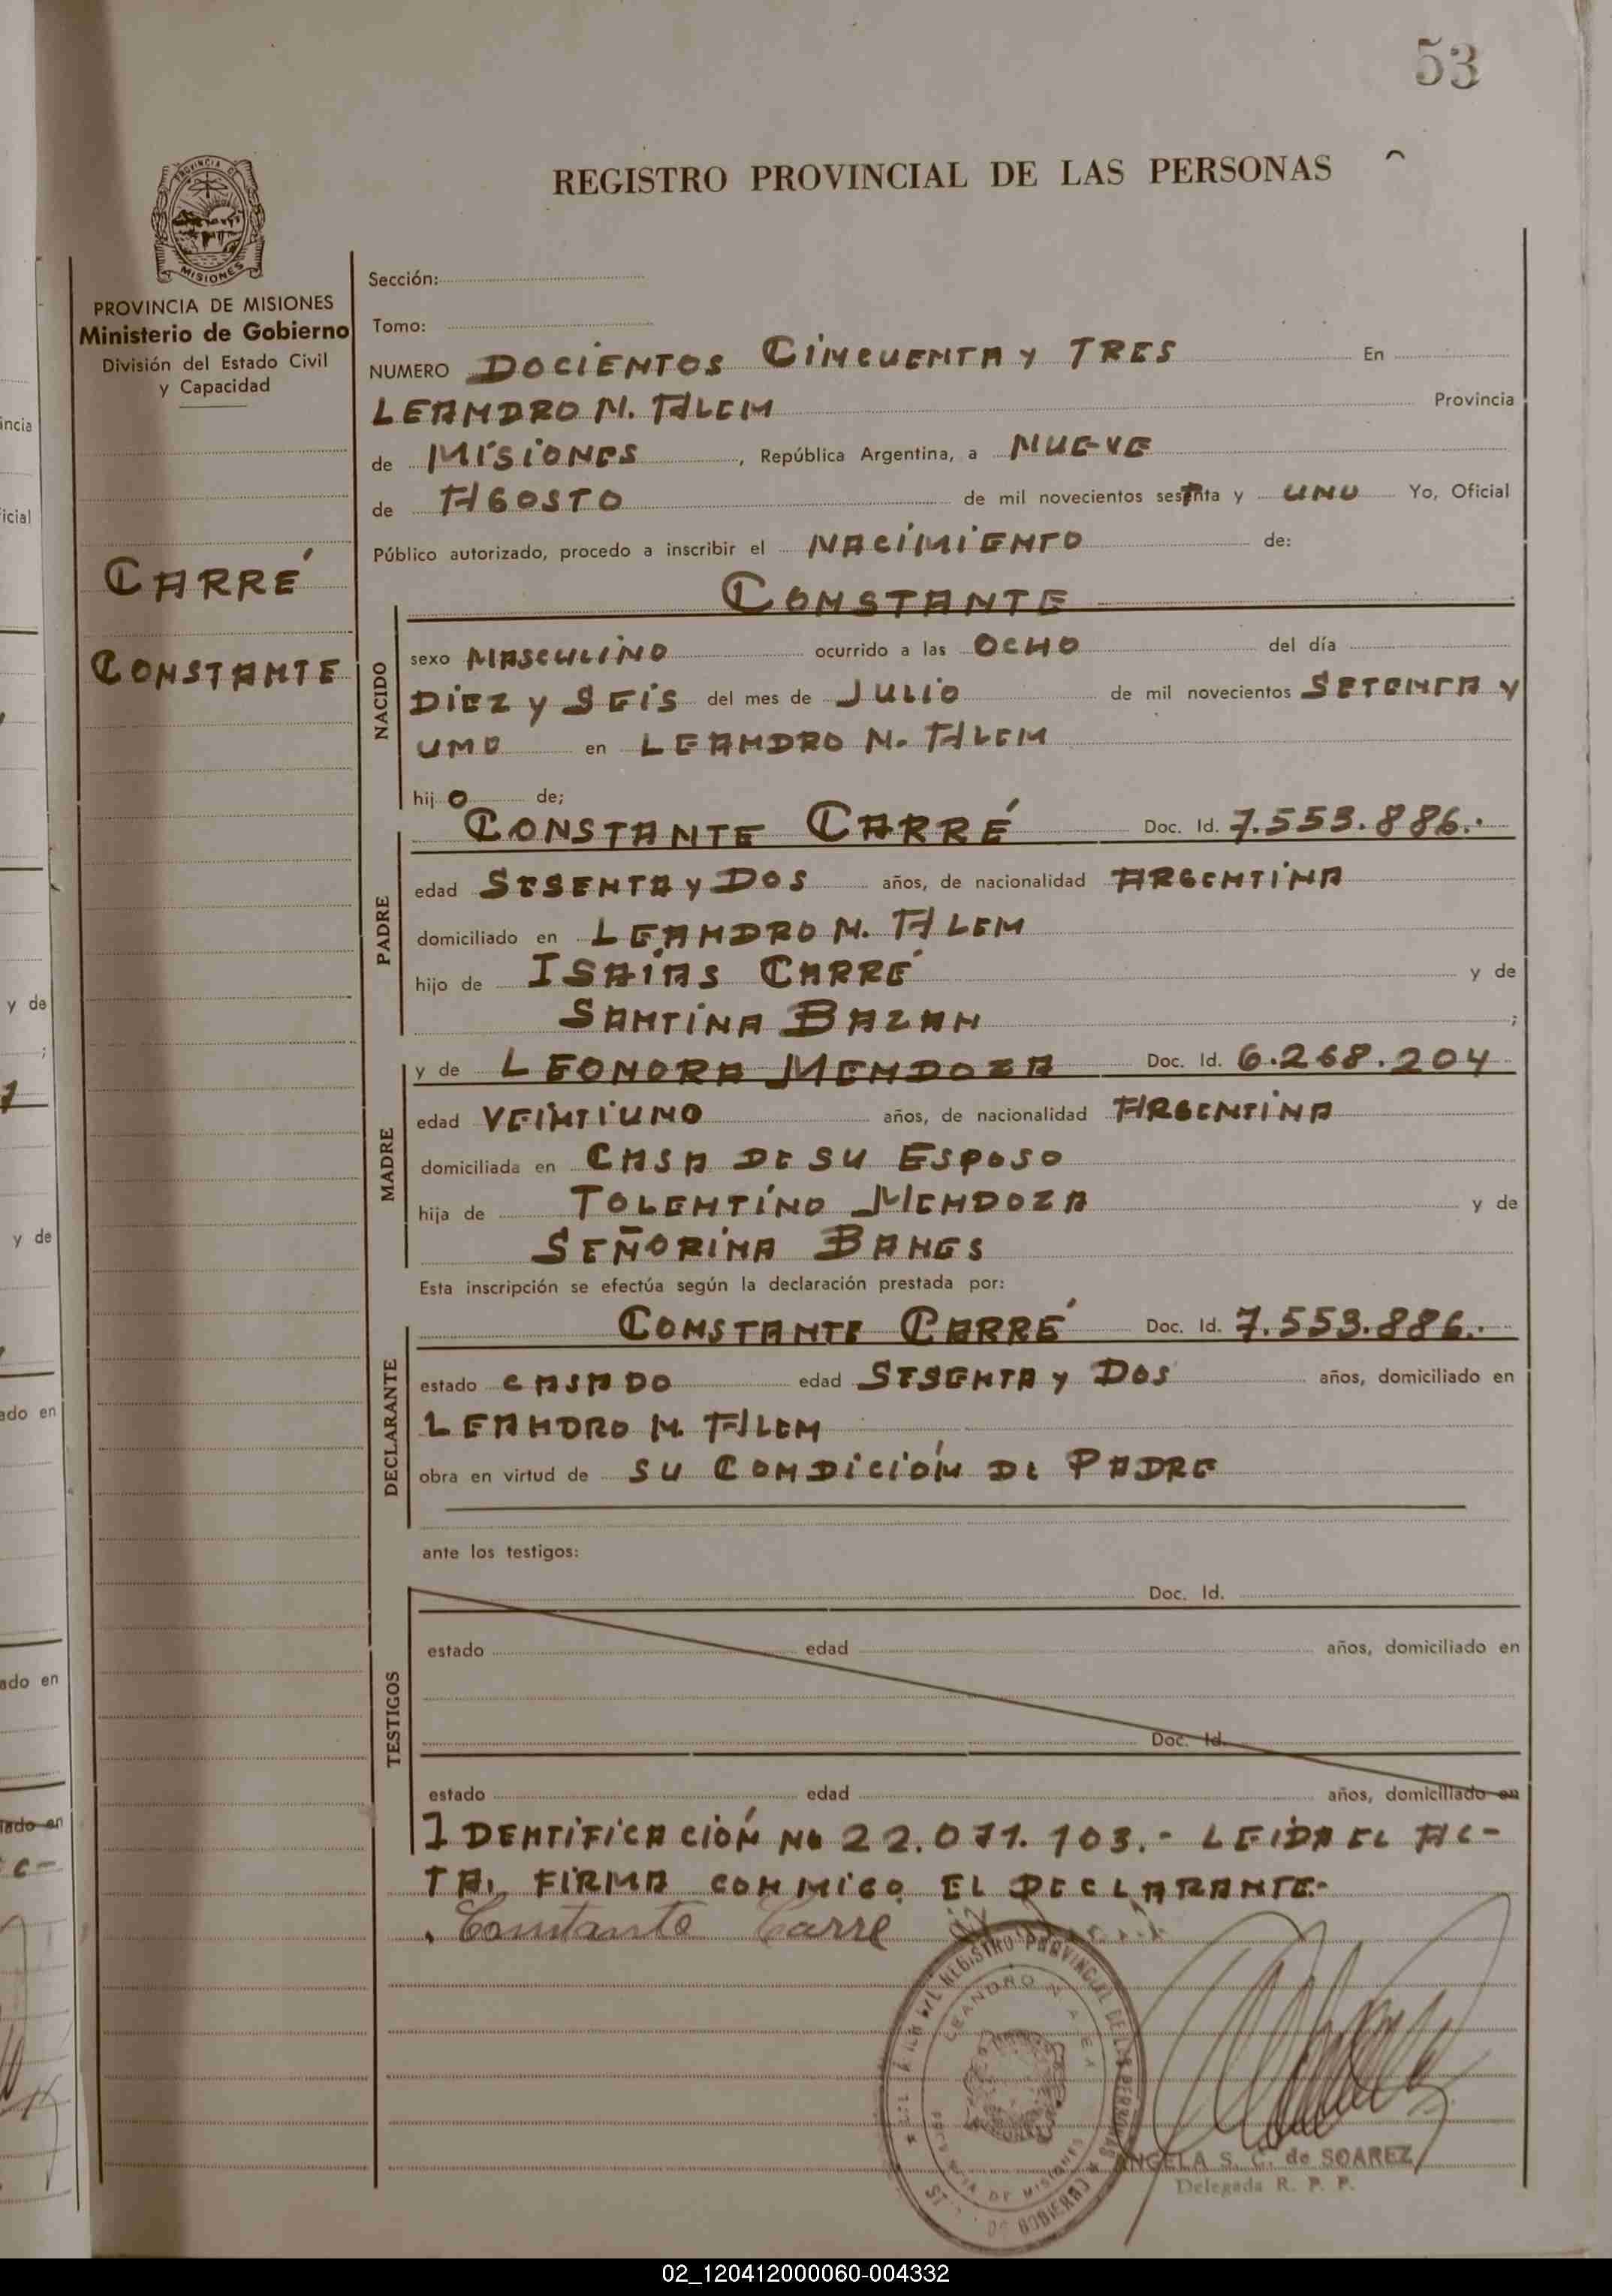 53
REGISTRO PROVINCIAL DE LAS PERSONAS
PROVINCIA DE
MISIONES
PROVINCIA DE MISIONES
Ministerio de Gobierno
División del Estado Civil
y Capacidad
CARRÉ
CONSTANTE
Sección:
Tomo:
NUMERO DOCIENTOS CINCUENTA Y TRES En
LEANDRO N. ALEM Provincia
de MISIONES, República Argentina, a NUEVE
de AGOSTO de mil novecientos sesenta y UNO Yo, Oficial
Público autorizado, procedo a inscribir el NACIMIENTO de:
CONSTANTE
NACIDO
sexo MASCULINO ocurrido a las OCHO del día
DIEZ y SEIS del mes de JULIO de mil novecientos SETENTA y
UNO en LEANDRO N. ALEM
hijo de;
PADRE
CONSTANTE CARRÉ Doc. Id. 7.553.886.-
edad SESENTA y DOS años, de nacionalidad ARGENTINA
domiciliado en LEANDRO N. ALEM
hijo de ISAÍAS CARRÉ y de
SANTINA BAZAN ;
MADRE
y de LEONORA MENDOZA Doc. Id. 6.268.204
edad VEINTIUNO años, de nacionalidad ARGENTINA
domiciliada en CASA DE SU ESPOSO
hija de TOLENTINO MENDOZA y de
SEÑORINA BANGS
Esta inscripción se efectúa según la declaración prestada por:
DECLARANTE
CONSTANTE CARRÉ Doc. Id. 7.553.886.-
estado CASADO edad SESENTA y DOS años, domiciliado en
LEANDRO N. ALEM
obra en virtud de SU CONDICIÓN DE PADRE
ante los testigos:
TESTIGOS
Doc. Id.
estado edad años, domiciliado en
Doc. Id.
estado edad años, domiciliado en
IDENTIFICACIÓN No 22.071.103.- LEIDA EL AC-
TA, FIRMA CONMIGO EL DECLARANTE.-
Constante Carre
REGISTRO PROVINCIAL DE LAS PERSONAS
LEANDRO N. ALEM
DE MISIONES
DE GOBIERNO
ANGELA S. C. de SOAREZ
Delegada R. P. P.
incia
icial
y de
;
y de
ado en
ado en
iado en
C-
02_120412000060-004332